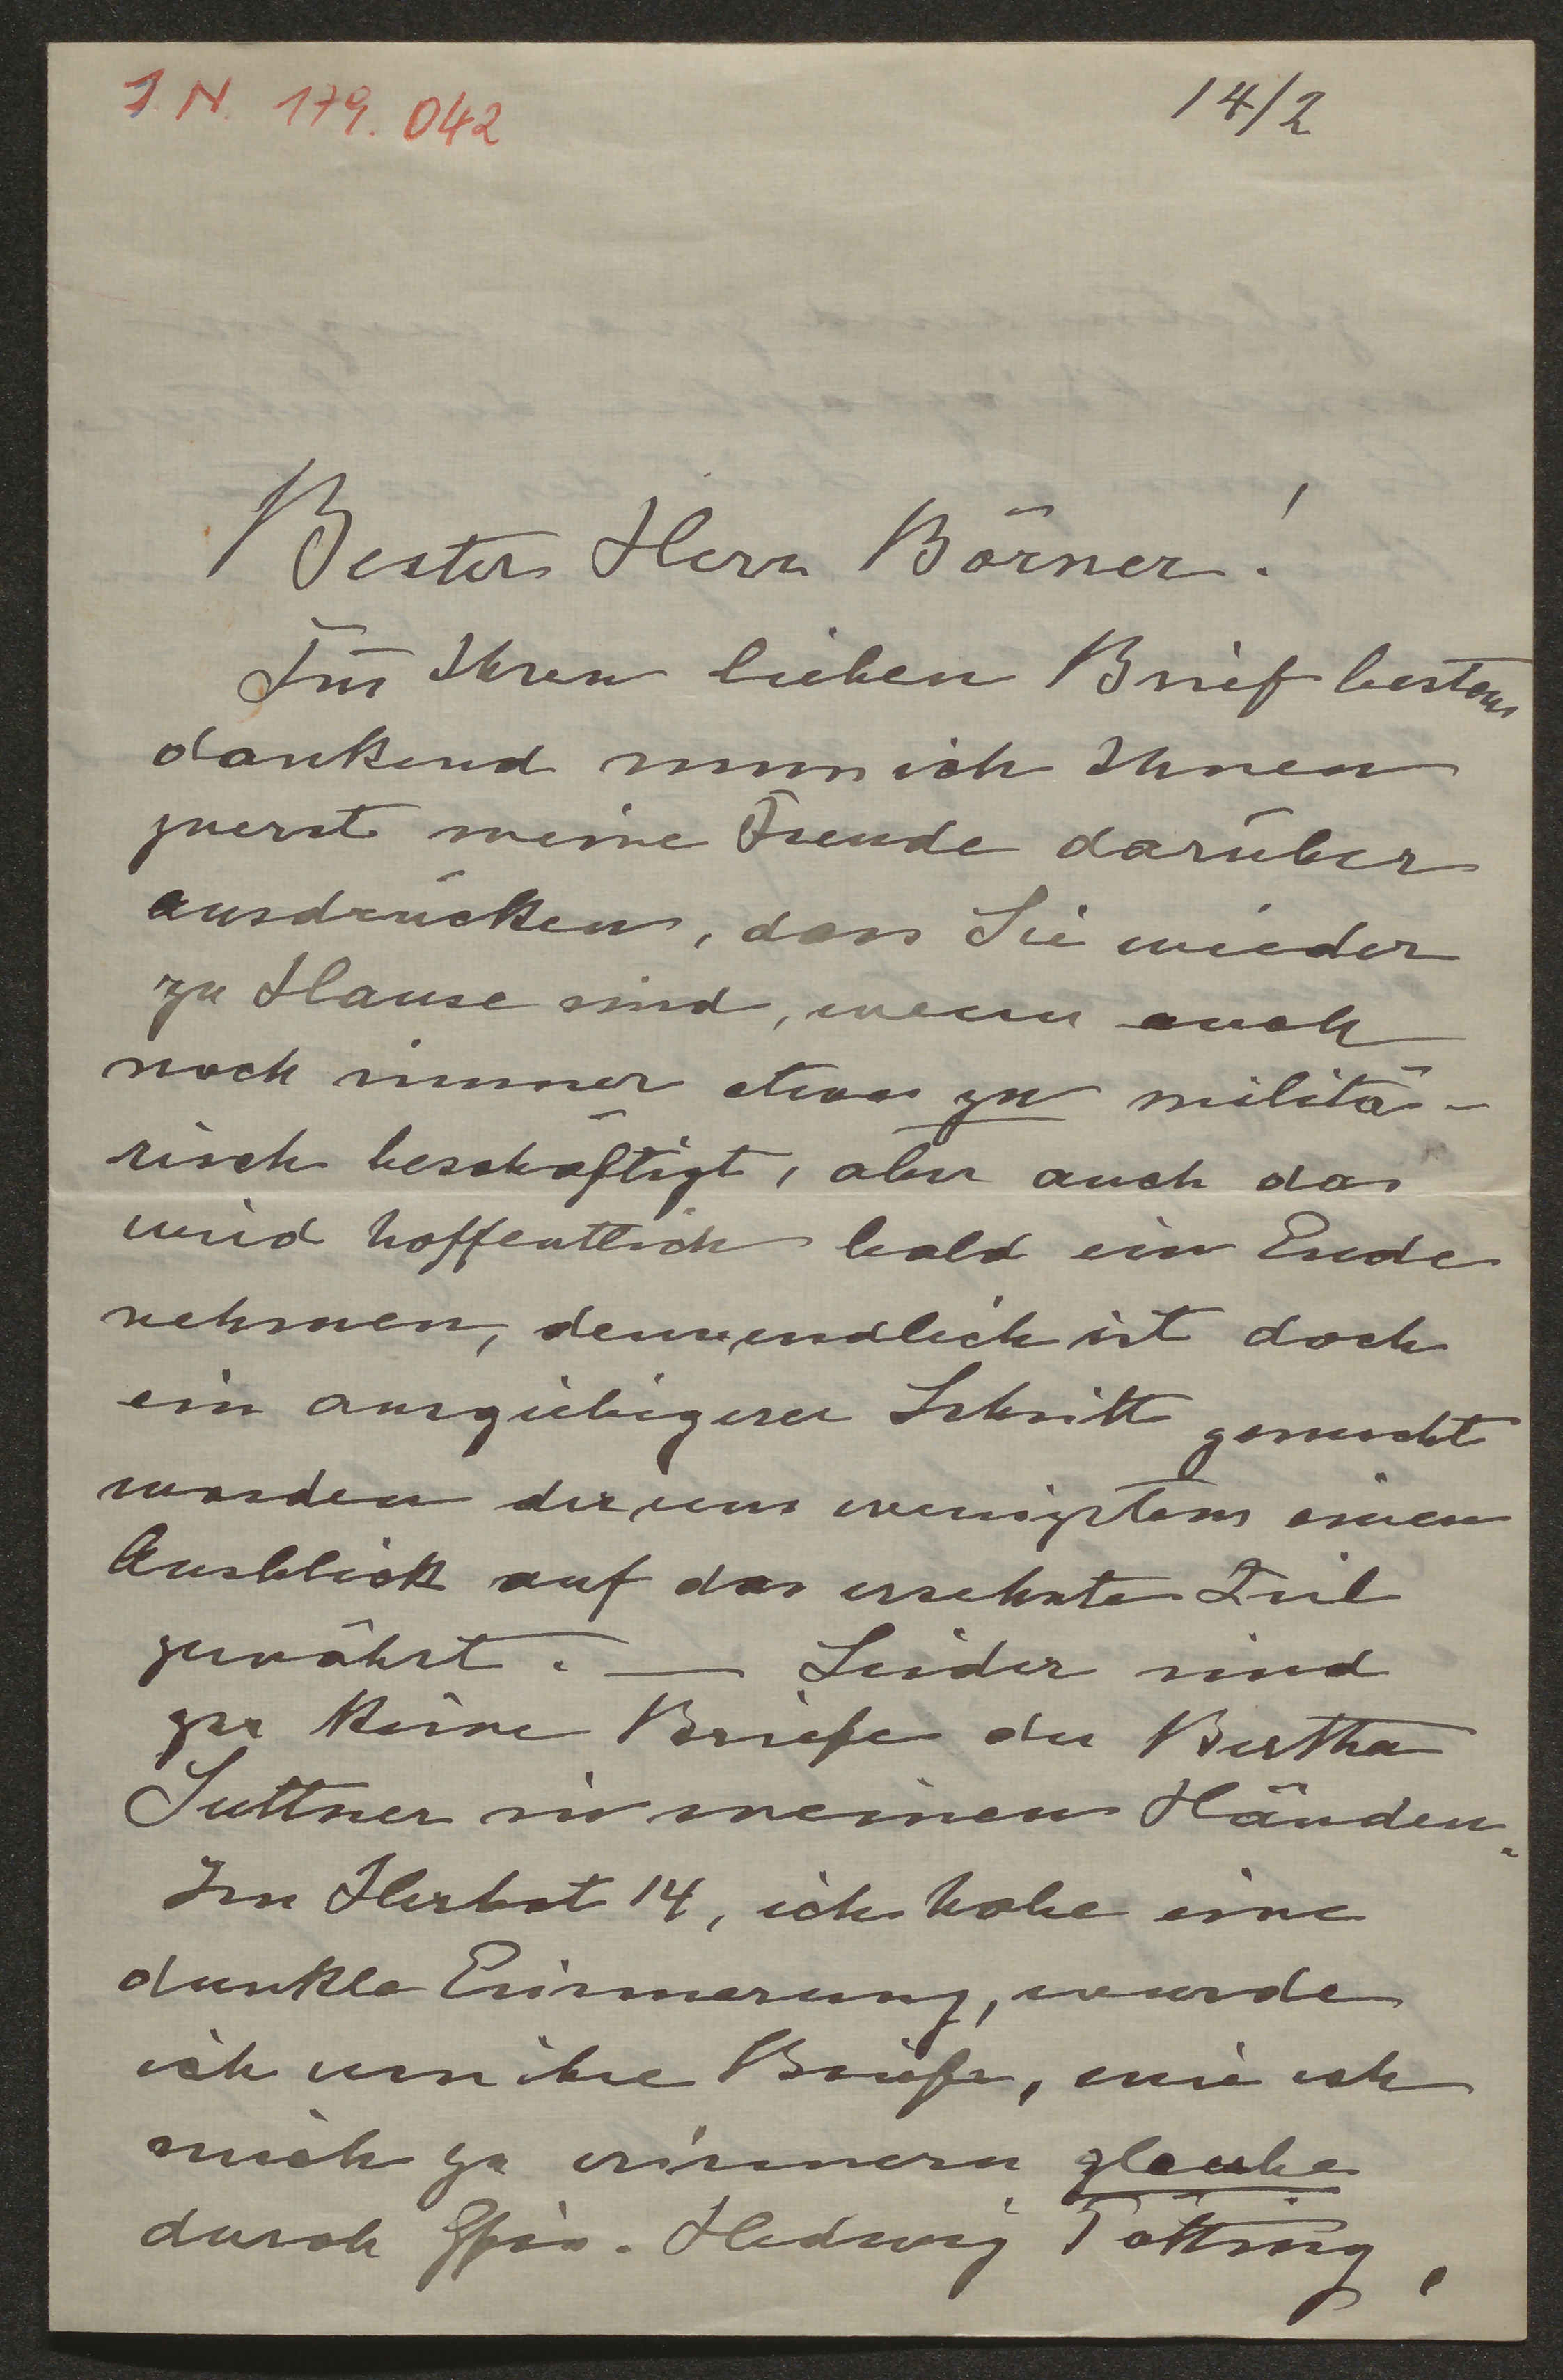 I. N. 179.042
14/2
Bester Herr Börner!
Für Ihren lieben Brief bestens
dankend muss ich Ihnen
zuerst meine Freude darüber
ausdrücken, dass Sie wieder
zu Hause sind, wenn auch
noch immer etwas zu militä-
risch beschäftigt, aber auch das
wird hoffentlich bald ein Ende
nehmen, denn endlich ist doch
ein ausgiebigerer Schritt gemacht
worden der uns wenigstens einen
Ausblick auf das ersehnte Ziel
gewährt. — Leider sind
gar keine Briefe der Bertha
Suttner in meinen Händen.
Im Herbst 14, ich habe eine
dunkle Erinnerung, wurde
ich um ihre Briefe, wie ich
mich zu erinnern glaube
durch Hedwig Pötting,